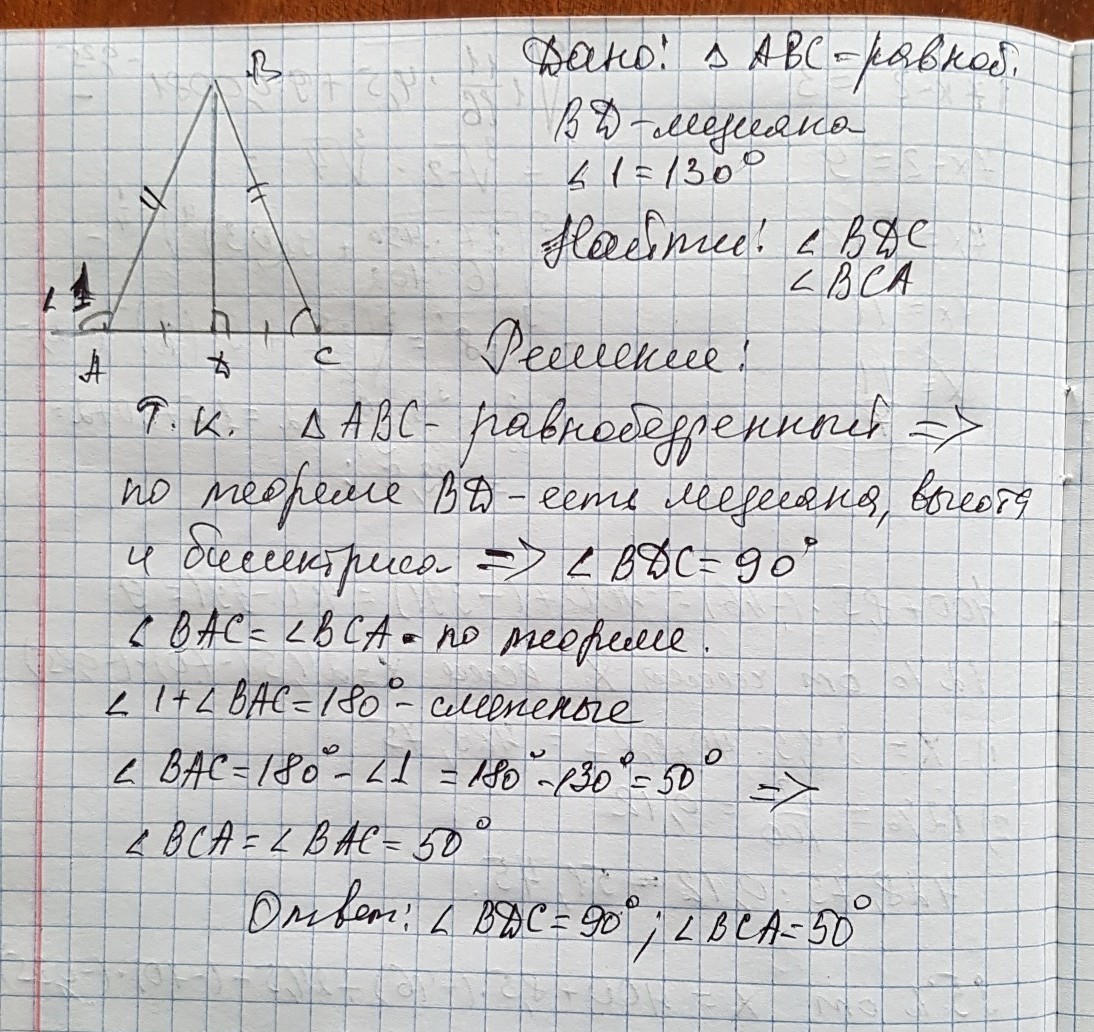 Дано: Δ ABC = равноб.
BD - медиана
∠ 1 = 130°
Найти: ∠ BDC
∠ BCA
B
∠ 1
A D C
Решение:
Т. к. Δ ABC - равнобедренный =>
по теореме BD - есть медиана, высота
и биссектриса => ∠ BDC = 90°
∠ BAC = ∠ BCA - по теореме.
∠ 1 + ∠ BAC = 180° - смежные
∠ BAC = 180° - ∠1 = 180° - 130° = 50° =>
∠ BCA = ∠ BAC = 50°
Ответ: ∠ BDC = 90°; ∠ BCA = 50°